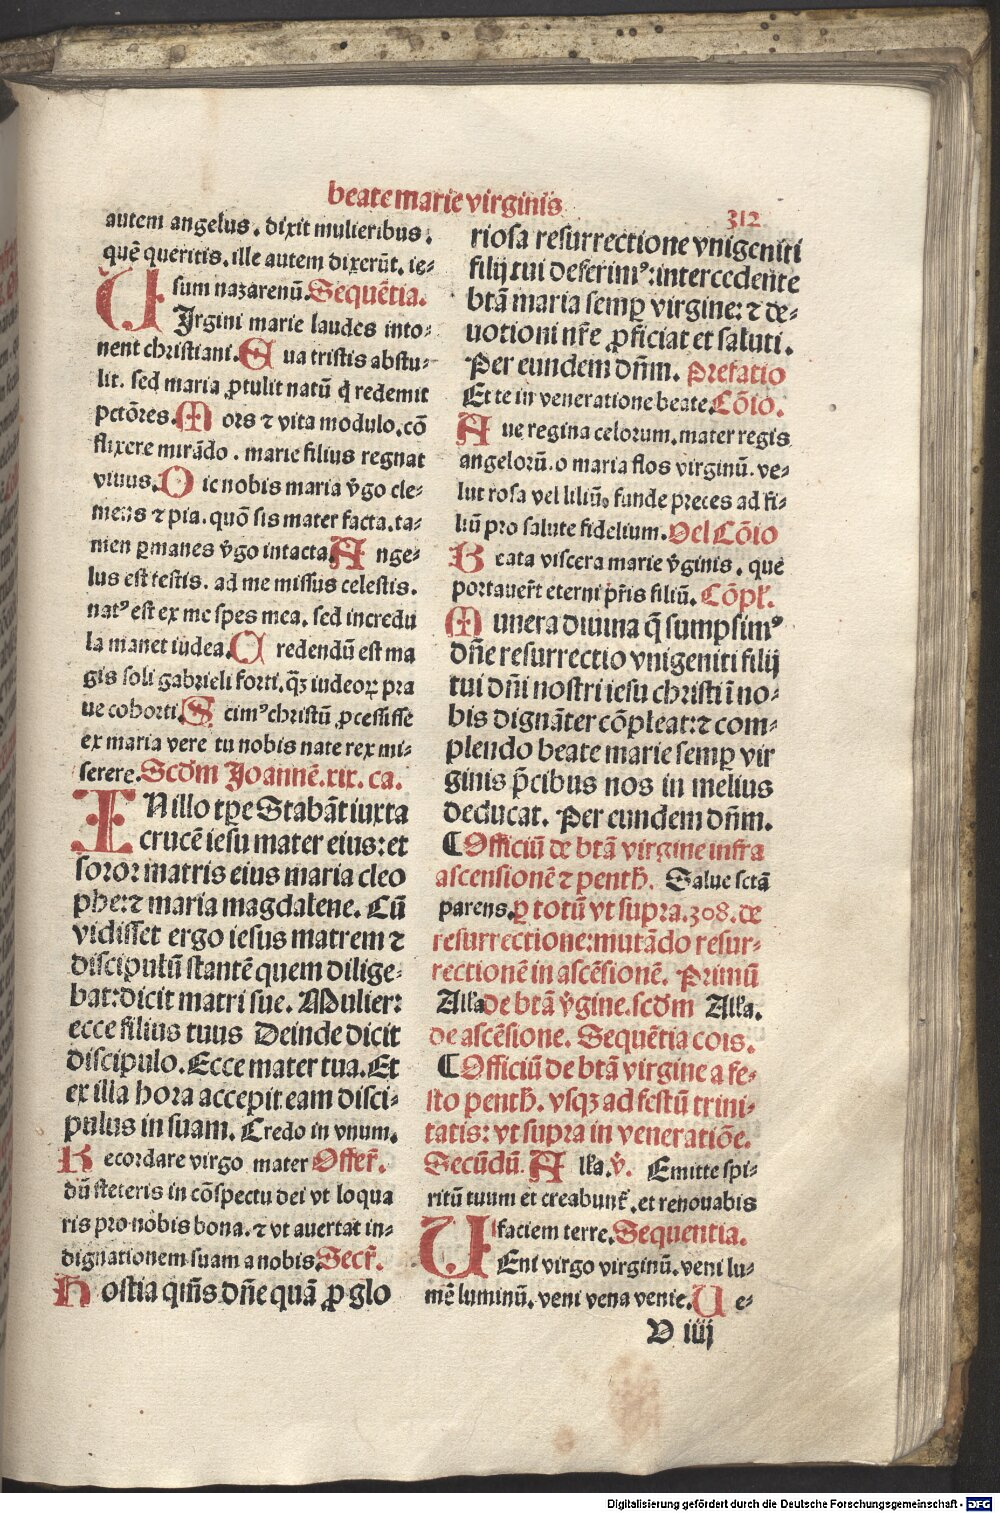 beate marie virginis
312
autem angelus. dixit mulieribus.
quē queritis. ille autem dixerūt. ie⸗
sum nazarenū. Sequētia.
UIrgini marie laudes into⸗
nent christiani. E ua tristis abstu⸗
lit. sed maria ꝓtulit natū q̇ redemit
pctōres. M ors ⁊ vita modulo. cō
flixere mirādo. marie filius regnat
viuus. D ic nobis maria v̄go cle⸗
mens ⁊ pia. quō sis mater facta. ta⸗
men ꝑmanes v̄go intacta. A nge⸗
lus est testis. ad me missus celestis.
natꝰ est ex me spes mea. sed incredu
la manet iudea. C redendū est ma
gis soli gabrieli forti. q̄ꝫ iudeoꝝ pra
ue cohorti. S cimꝰ christū ꝓcessisse
ex maria vere tu nobis nate rex mi⸗
serere. Scd̄m Joannē. xix. ca.
IN illo tꝑe Stabāt iuxta
crucē iesu mater eius: et
soror matris eius maria cleo
phe: ⁊ maria magdalene. Cū
vidisset ergo iesus matrem ⁊
discipulū stantē quem dilige⸗
bat: dicit matri sue. Mulier:
ecce filius tuus Deinde dicit
discipulo. Ecce mater tua. Et
ex illa hora accepit eam disci⸗
pulus in suam. Credo in vnum.
R ecordare virgo mater Offer̄.
dū steteris in cōspectu dei vt loqua
ris pro nobis bona. ⁊ vt auertat in⸗
dignationem suam a nobis. Secr̄.
H ostia qm̄s dn̄e quā ꝓ glo
riosa resurrectione vnigeniti
filij tui deferimꝰ: intercedente
btā maria semꝑ virgine: ⁊ de⸗
uotioni nr̄e ꝓficiat et saluti.
Per eundem dn̄m. Prefatio
Et te in veneratione beate Cōio.
A ue regina celorum. mater regis
angelorū. o maria flos virginū. ve⸗
lut rosa vel liliū. funde preces ad fi⸗
liū pro salute fidelium. Vel Cōio
B eata viscera marie v̄ginis. que
portauer̄t eterni pr̄is filiū. Cōpl̄.
M unera diuina q̄ sumpsimꝰ
dn̄e resurrectio vnigeniti filij
tui dn̄i nostri iesu christi ī no⸗
bis dignāter cōpleat: ⁊ com⸗
plendo beate marie semꝑ vir
ginis p̄cibus nos in melius
deducat. Per eundem dn̄m.
¶ Officiū de btā virgine infra
ascensionē ⁊ penth̄. Salue sctā
parens. ꝑ totū vt supra. 308. de
resurrectione: mutādo resur⸗
rectionē in ascēsionē. Primū
Alla de btā v̄gine. scd̄m Alla.
de ascēsione. Sequētia cois.
¶ Officiū de btā virgine a fe⸗
sto penth̄. vsqꝫ ad festū trini⸗
tatis: vt supra in veneratiōe.
Secūdū. A lla. v̄. Emitte spi⸗
ritū tuum et creabunt̄. et renouabis
faciem terre. Sequentia.
UEni virgo virginū. veni lu⸗
mē luminū. veni vena venie. U e⸗
D iiij
Digitalisierung gefördert durch die Deutsche Forschungsgemeinschaft - DFG